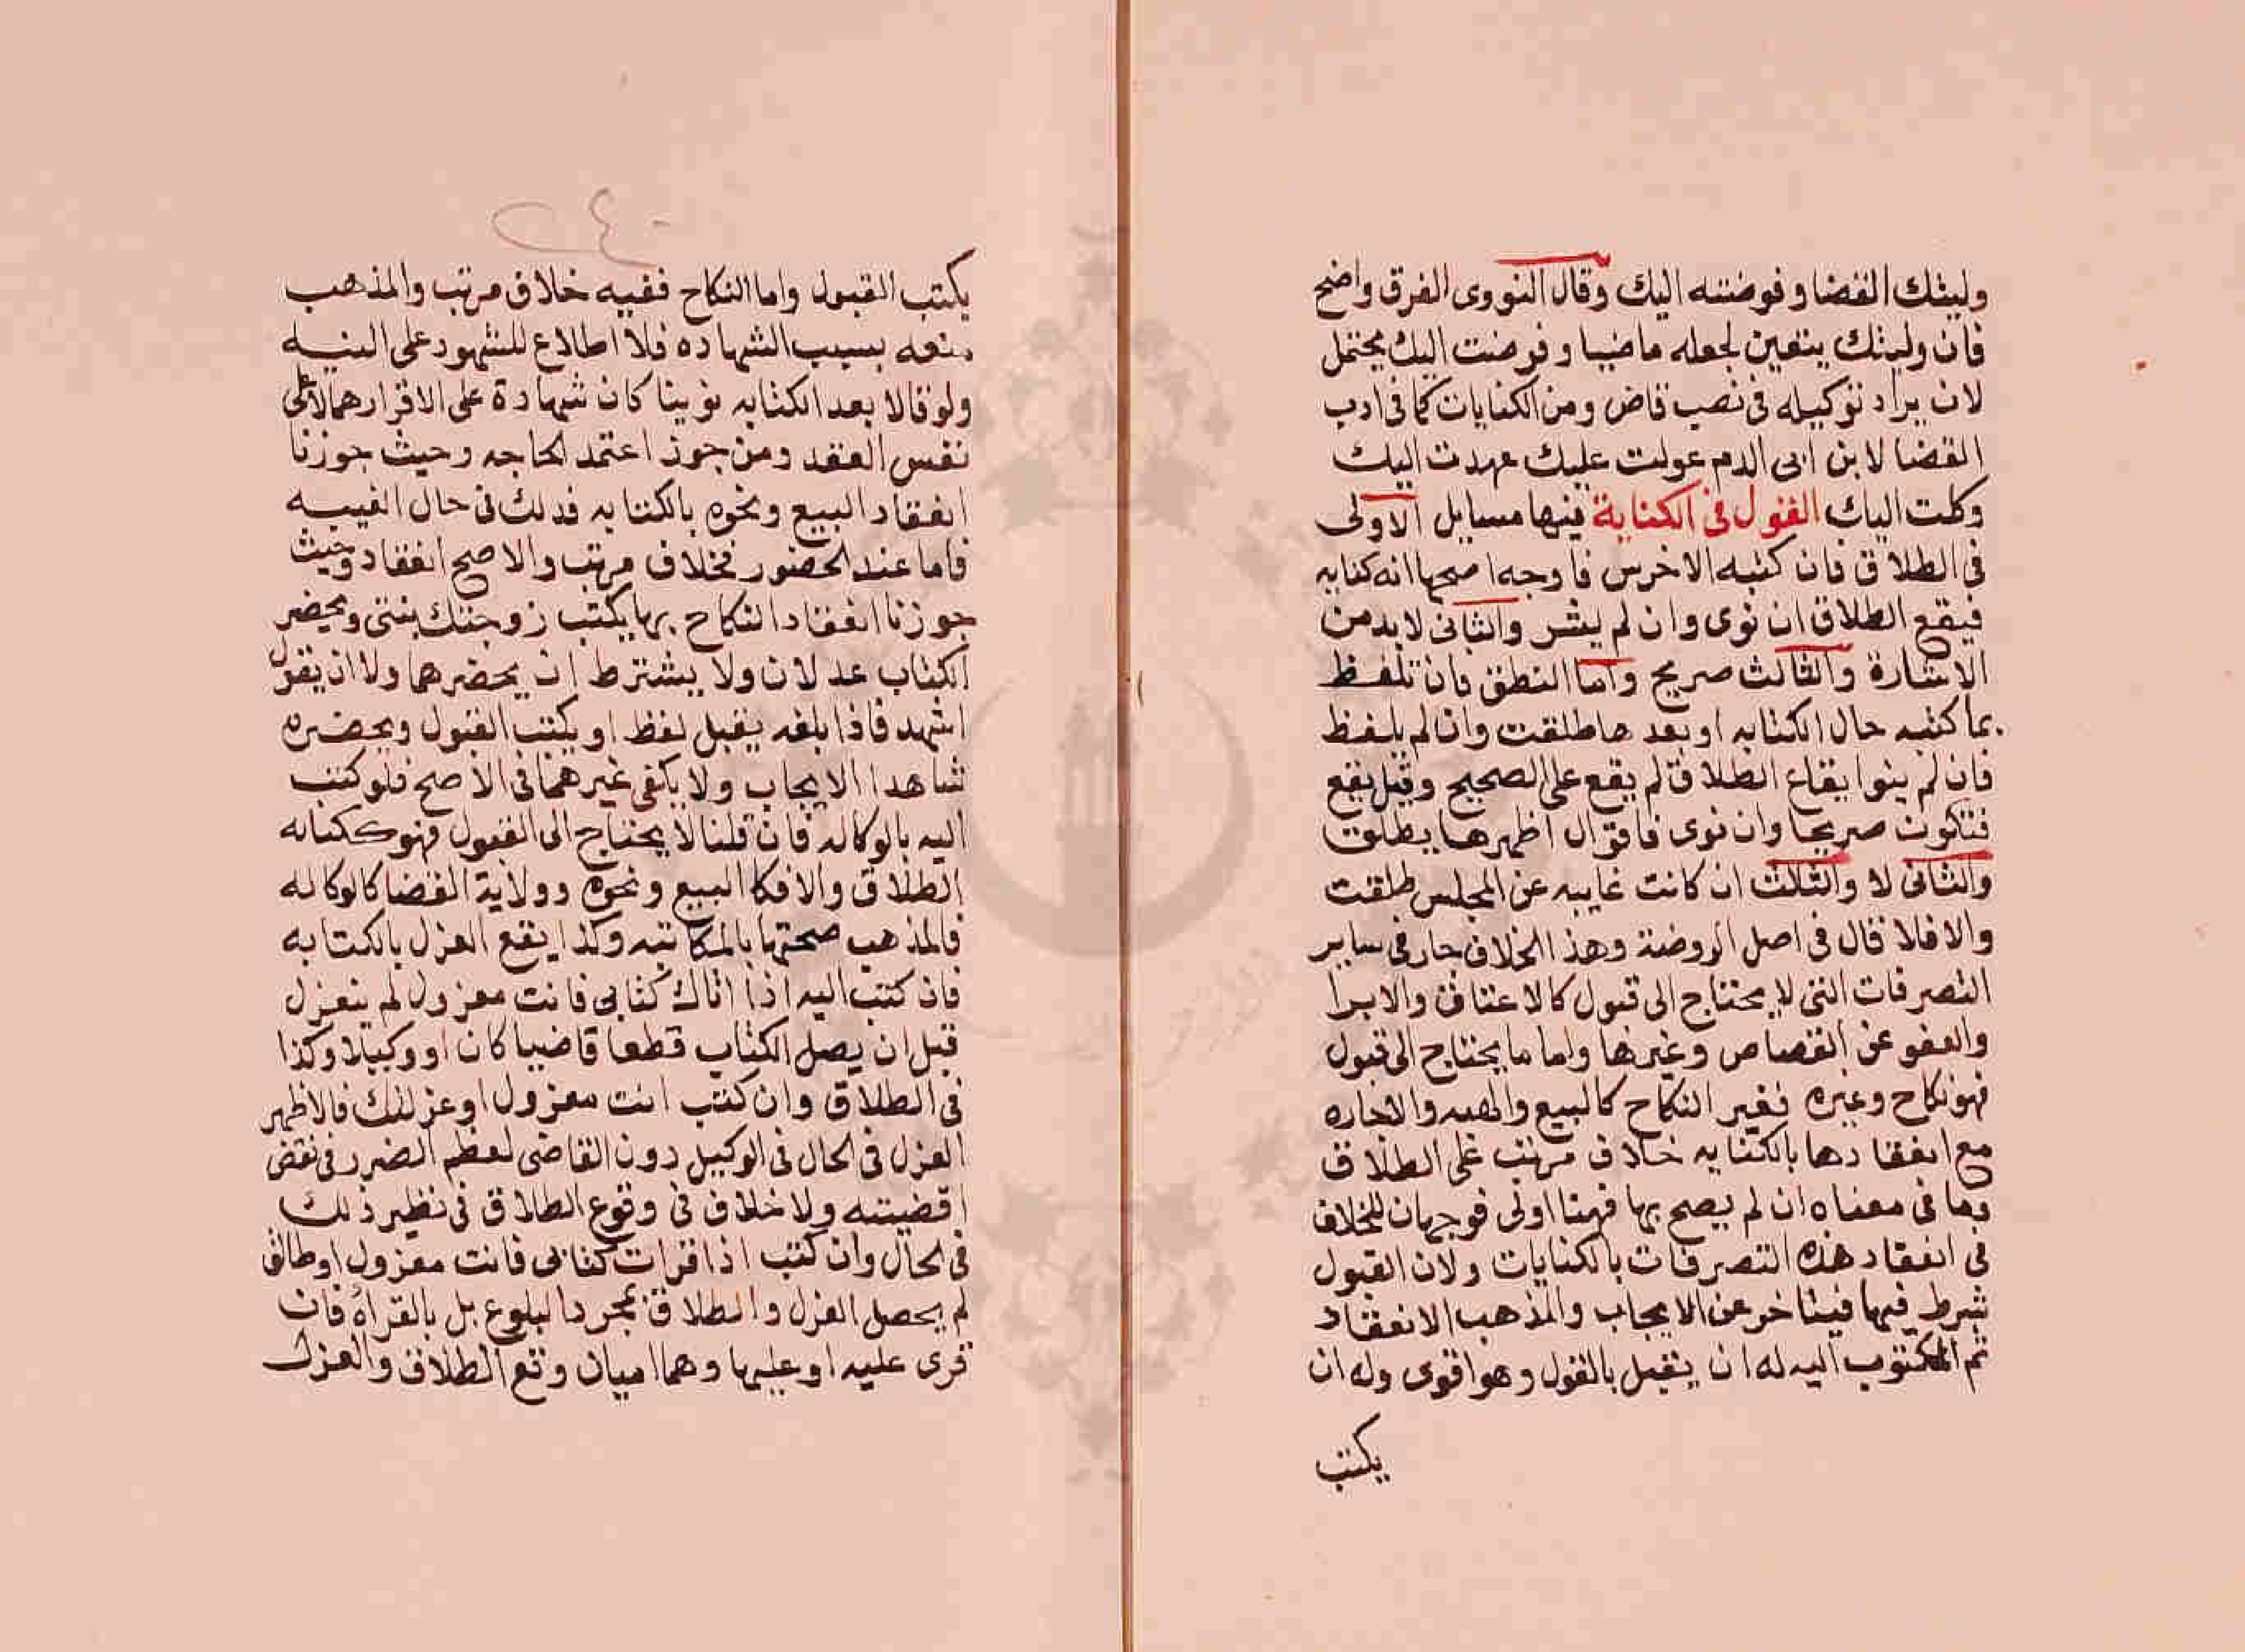 وليتك القضا وفوضته اليك وقال النووى الفرق واضح
فان وليتك يتعين لجعله ماضيا وفوضت اليك يحتمل
لان يراد توكيله فى نصب قاض ومن الكنايات كما فى ادب
القضا لابن ابى الدم عولت عليك عهدت اليك
وكلت اليك القول فى الكتابة فيها مسايل الاولى
فى الطلاق فان كتبه الاخرس فاوجه اصحها انه كنايه
فيقع الطلاق ان نوى وان لم يشر والثانى لابد من
الاشارة والثالث صريح واما النطق فان تلفظ
بما كتبه حال الكتابه او بعدها طلقت وان لم يلفظ
فان لم ينوا يقاع الطلاق لم يقع على الصحيح وقيل يقع
فتكون صريحا وان نوى فاقوال اظهرها يطلق
والثانى لا والثلث ان كانت غايبه عن المجلس طلقت
والا فلا قال فى اصل الروضة وهذا الخلاف جار فى ساير
التصرفات التى لا يحتاج الى قبول كالاعتاق والابرا
والعفو عن القصاص وغيرها واما ما يحتاج الى قبول
فهو نكاح وغيره فغير النكاح كالبيع والهبه والاجاره
مع انعقادها بالكتابه خلاف مرتب على الطلاق
وما فى معناه ان لم يصح بها فهنا اولى فوجهان للخلاف
فى انعقاد هذه التصرفات بالكنايات ولان القبول
شرط فيها فيتاخر عن الايجاب والمذهب الانعقاد
ثم المكتوب اليه له ان يقبل بالقول وهو اقوى وله ان
يكتب
يكتب القبول واما النكاح ففيه خلاف مرتب والمذهب
منعه بسبب الشهاده فلا اطلاع للشهود على النيه
ولو قالا بعد الكتابه نوينا كان شهادة على الاقرار هما لا على
نفس العقد ومن جوز اعتمد الحاجه وحيث جوزنا
انعقاد البيع ونحوه بالكتابه فدلك فى حال الغيبه
فاما عند الحضور فخلاف مرتب والاصح انعقاد وحيث
جوزنا انعقاد النكاح بها يكتب زوجتك بنتى ويحضر
الكتاب عدلان ولا يشترط ان يحضرهما ولا ان يقول
اشهد فاذا بلغه يقبل لفظ او يكتب القبول ويحضره
شاهدا الايجاب ولا يكفى غيرهما فى الاصح فلو كتب
اليه بالوكاله فان قلنا لا يحتاج الى القبول فهو ككتابه
الطلاق والا فكا البيع ونحوه وولاية القضا كالوكاله
فالمذهب صحتها بالمكاتبه وكذا يقع العزل بالكتابه
فان كتب اليه اذا اتاك كتابى فانت معزول لم ينعزل
قبل ان يصل الكتاب قطعا قاضيا كان او وكيلا وكذا
فى الطلاق وان كتب انت معزول او عزلتك فالاظهر
العزل فى الحال فى الوكيل دون القاضى لعظم الضرر فى نقض
اقضيته ولا خلاف فى وقوع الطلاق فى نظير ذلك
فى الحال وان كتب اذا قرات كتابى فانت معزول او طالق
لم يحصل العزل والطلاق بمجرد البلوغ بل بالقراة فان
قرى عليه او عليها وهما اميان وقع الطلاق والعزل